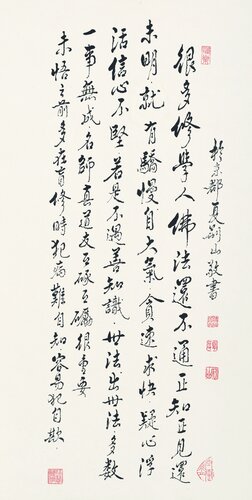 很多修學人佛法還不通正知正見還
未明就有驕慢自大氣貪速求快疑心浮
活信心不堅若是不遇善知識世法出世法多数
一事無成名師真道友互琢互礪很重要
未悟之前多在盲修時犯病難自知容易犯自欺
於京都夏荊山敬書